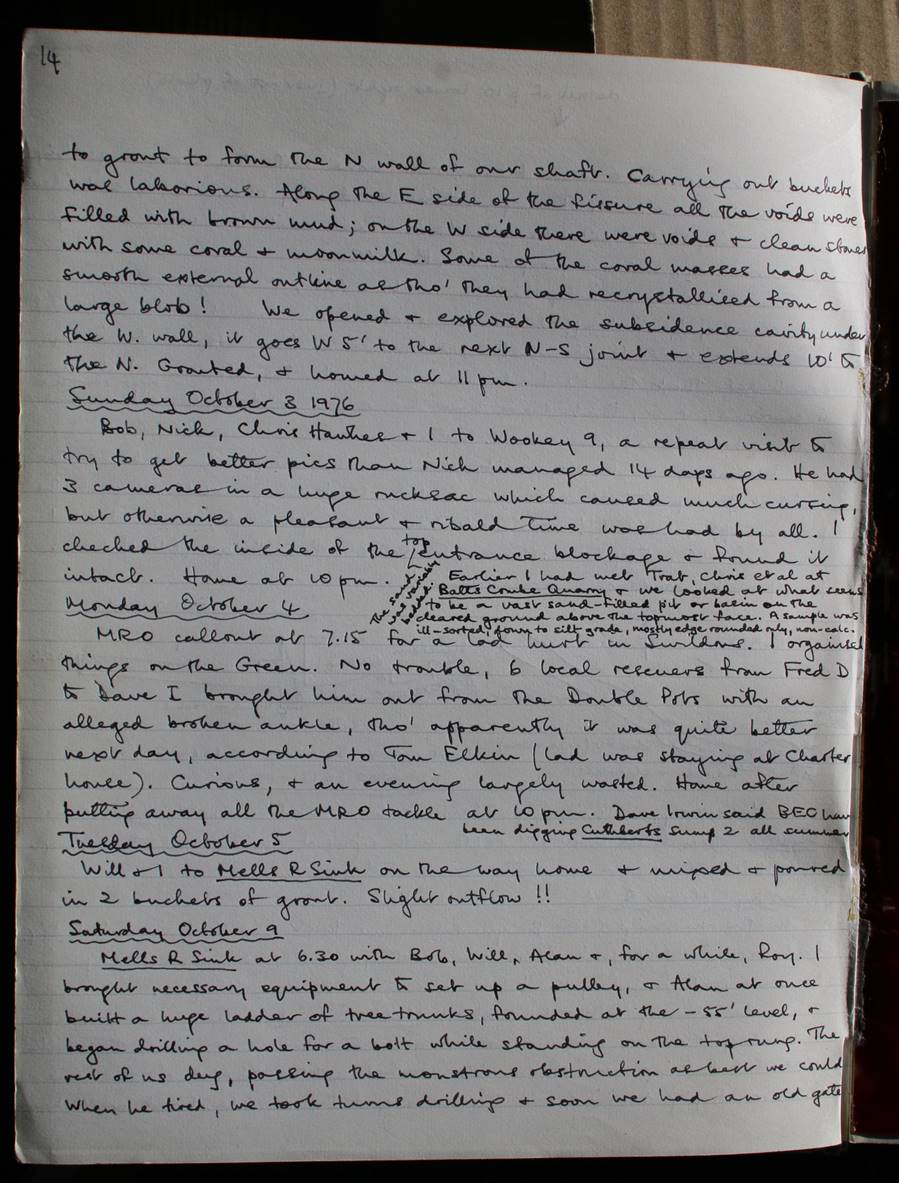 14
to grout to form the N wall of our shaft. Carrying out buckets
was laborious. Along the E side of the fissure all the voids were
filled with brown mud; on the W side there were voids + clean stones
with some coral + moonmilk. Some of the coral masses had a
smooth external outline as tho' they had recrystallised from a
large blob! We opened + explored the subsidence cavity under
the W. wall, it goes W 5' to the next N-S joint + extends 10' to
the N. Grouted, + homed at 11 pm.
Sunday October 3 1976
Bob, Nick, Chris Hawkes + I to Wookey 9, a repeat visit to
try to get better pics than Nick managed 14 days ago. He had
3 cameras in a huge rucksac which caused much cursing,
but otherwise a pleasant + ribald time was had by all. I
checked the inside of the top entrance blockage + found it
intact. Home at 10 pm. Earlier I had met Trat, Chris et al at
Batts Combe Quarry + we looked at what seems
to be a vast sand-filled pit or basin on the
cleared ground above the topmost face. A sample was
ill-sorted, down to silt grade, mostly edge rounded only, non-calc.
The sand was variably
Monday October 4
MRO callout at 7.15 for a lad hurt in Swildons. I organised
things on the Green. No trouble, 6 local rescuers from Fred D
to Dave I brought him out from the Double Pots with an
alleged broken ankle, tho' apparently it was quite better
next day, according to Tom Elkin (lad was staying at Charter
house). Curious, + an evening largely wasted. Home after
putting away all the MRO tackle at 10 pm. Dave Irwin said BEC have
been digging Cuthberts Sump 2 all summer
Tuesday October 5
Will + I to Mells R Sink on the way home + mixed + poured
in 2 buckets of grout. Slight outflow !!
Saturday October 9
Mells R Sink at 6.30 with Bob, Will, Alan +, for a while, Roy. I
brought necessary equipment to set up a pulley, + Alan at once
built a huge ladder of tree trunks, founded at the -55' level, +
began drilling a hole for a bolt while standing on the top rung. The
rest of us dug, passing the monstrous obstruction as best we could
When he tired, we took turns drilling + soon we had an old gate